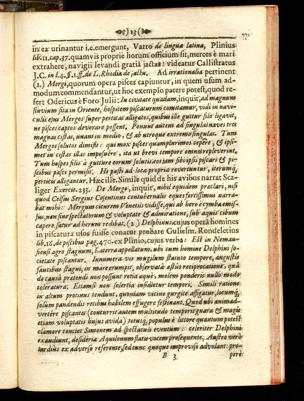 13
ins ex urinantur i.e. emergunt, Varro de lingua latina, Plinius
lib. 11. cap. 37. quam vis propriè horum officium sit, merces è mari
extrahere, navigii levandi gratiâ jactas: videatur Callistratus
J.C. in l. 4. §. 1. ff. de L. Rhodia de jactu. Ad irrationalia pertinent
(1.) Mergi, quorum opera pisces capiuntur, in quem usum ad-
modum commendantur, ut hoc exemplo patere potest, quod re-
fert Odericus è Foro Julii: In civitate quadam, inquit, ad magnum
fluvium sita in Oriente, hospitem piscaturum comitamur, vidi in navi-
culis ejus Mergos super perticas alligatos, quibus ille guttur filo ligavit,
ne pisces captos devorare possent. Ponunt autem ad singulas naves tres
magnas cistas, unam in medio, & ad utroque extremo singulas. Tum
Mergos solutos dimisit: qui mox pisces quamplurimos cepere, & ipsi-
met in cistas illas imposuere, ita ut brevi tempore omnes replerentur.
Tum hospes filis à gutture eorum solutis eos jam sibi ipsis piscari & pi-
scibus pasci permisit. Hi pasti ad loca propria revertuntur, iterumque
perticis alligantur. Hæc ille. Simile quid de his avibus narrat Sca-
liger Exercit. 233. De Mergo, inquit, nihil equidem præclari, nisi
quod Celsus Sergius
bat mihi: Mergum cicurem Venetiis vidisse, qui ab hero è cymba emis-
sus, non sine spectatorum & voluptate & admiratione, sub aquis cibum
capere, statur ad herum redibat. (2.) Delphinus, cujus opera homines
in piscatura usos fuisse conatur probare Gulielm. Rondeletius
lib. 16. de piscibus pag. 470. ex Plinio, cujus verba: Est in Nemau-
siensi agro stagnum, Laterra appellatum, ubi cum homine Delphini so-
cietate piscantur. Innumera vis mugilum statuto tempore, angustis
faucibus stagni, in mare erumpit, observatâ æstûs reciprocatione: quâ
de causâ prætendi non possunt retia, æquè molem ponderis nullo modo
toleratura: Etiamsi non solertia insidietur tempori. Simili ratione
in altum protinus tendunt, quod vicino gurgite efficitur, locumque
solum pandendis retibus habilem effugere festinant. Quod ubi animad-
vertêre piscantes (concurrit autem multitudo temporis gnara & magis
etiam voluptatis hujus avida) totusque populus è littore quantum potest
clamore conciet Simonem ad spectaculi eventum: celeriter Delphini
exaudiunt, desideria Aquilonum flatu vocem prosequente, Austro verò
tardiùs ex adverso referente, sed tunc quoque improviso advolant: pro-
B 3 perè